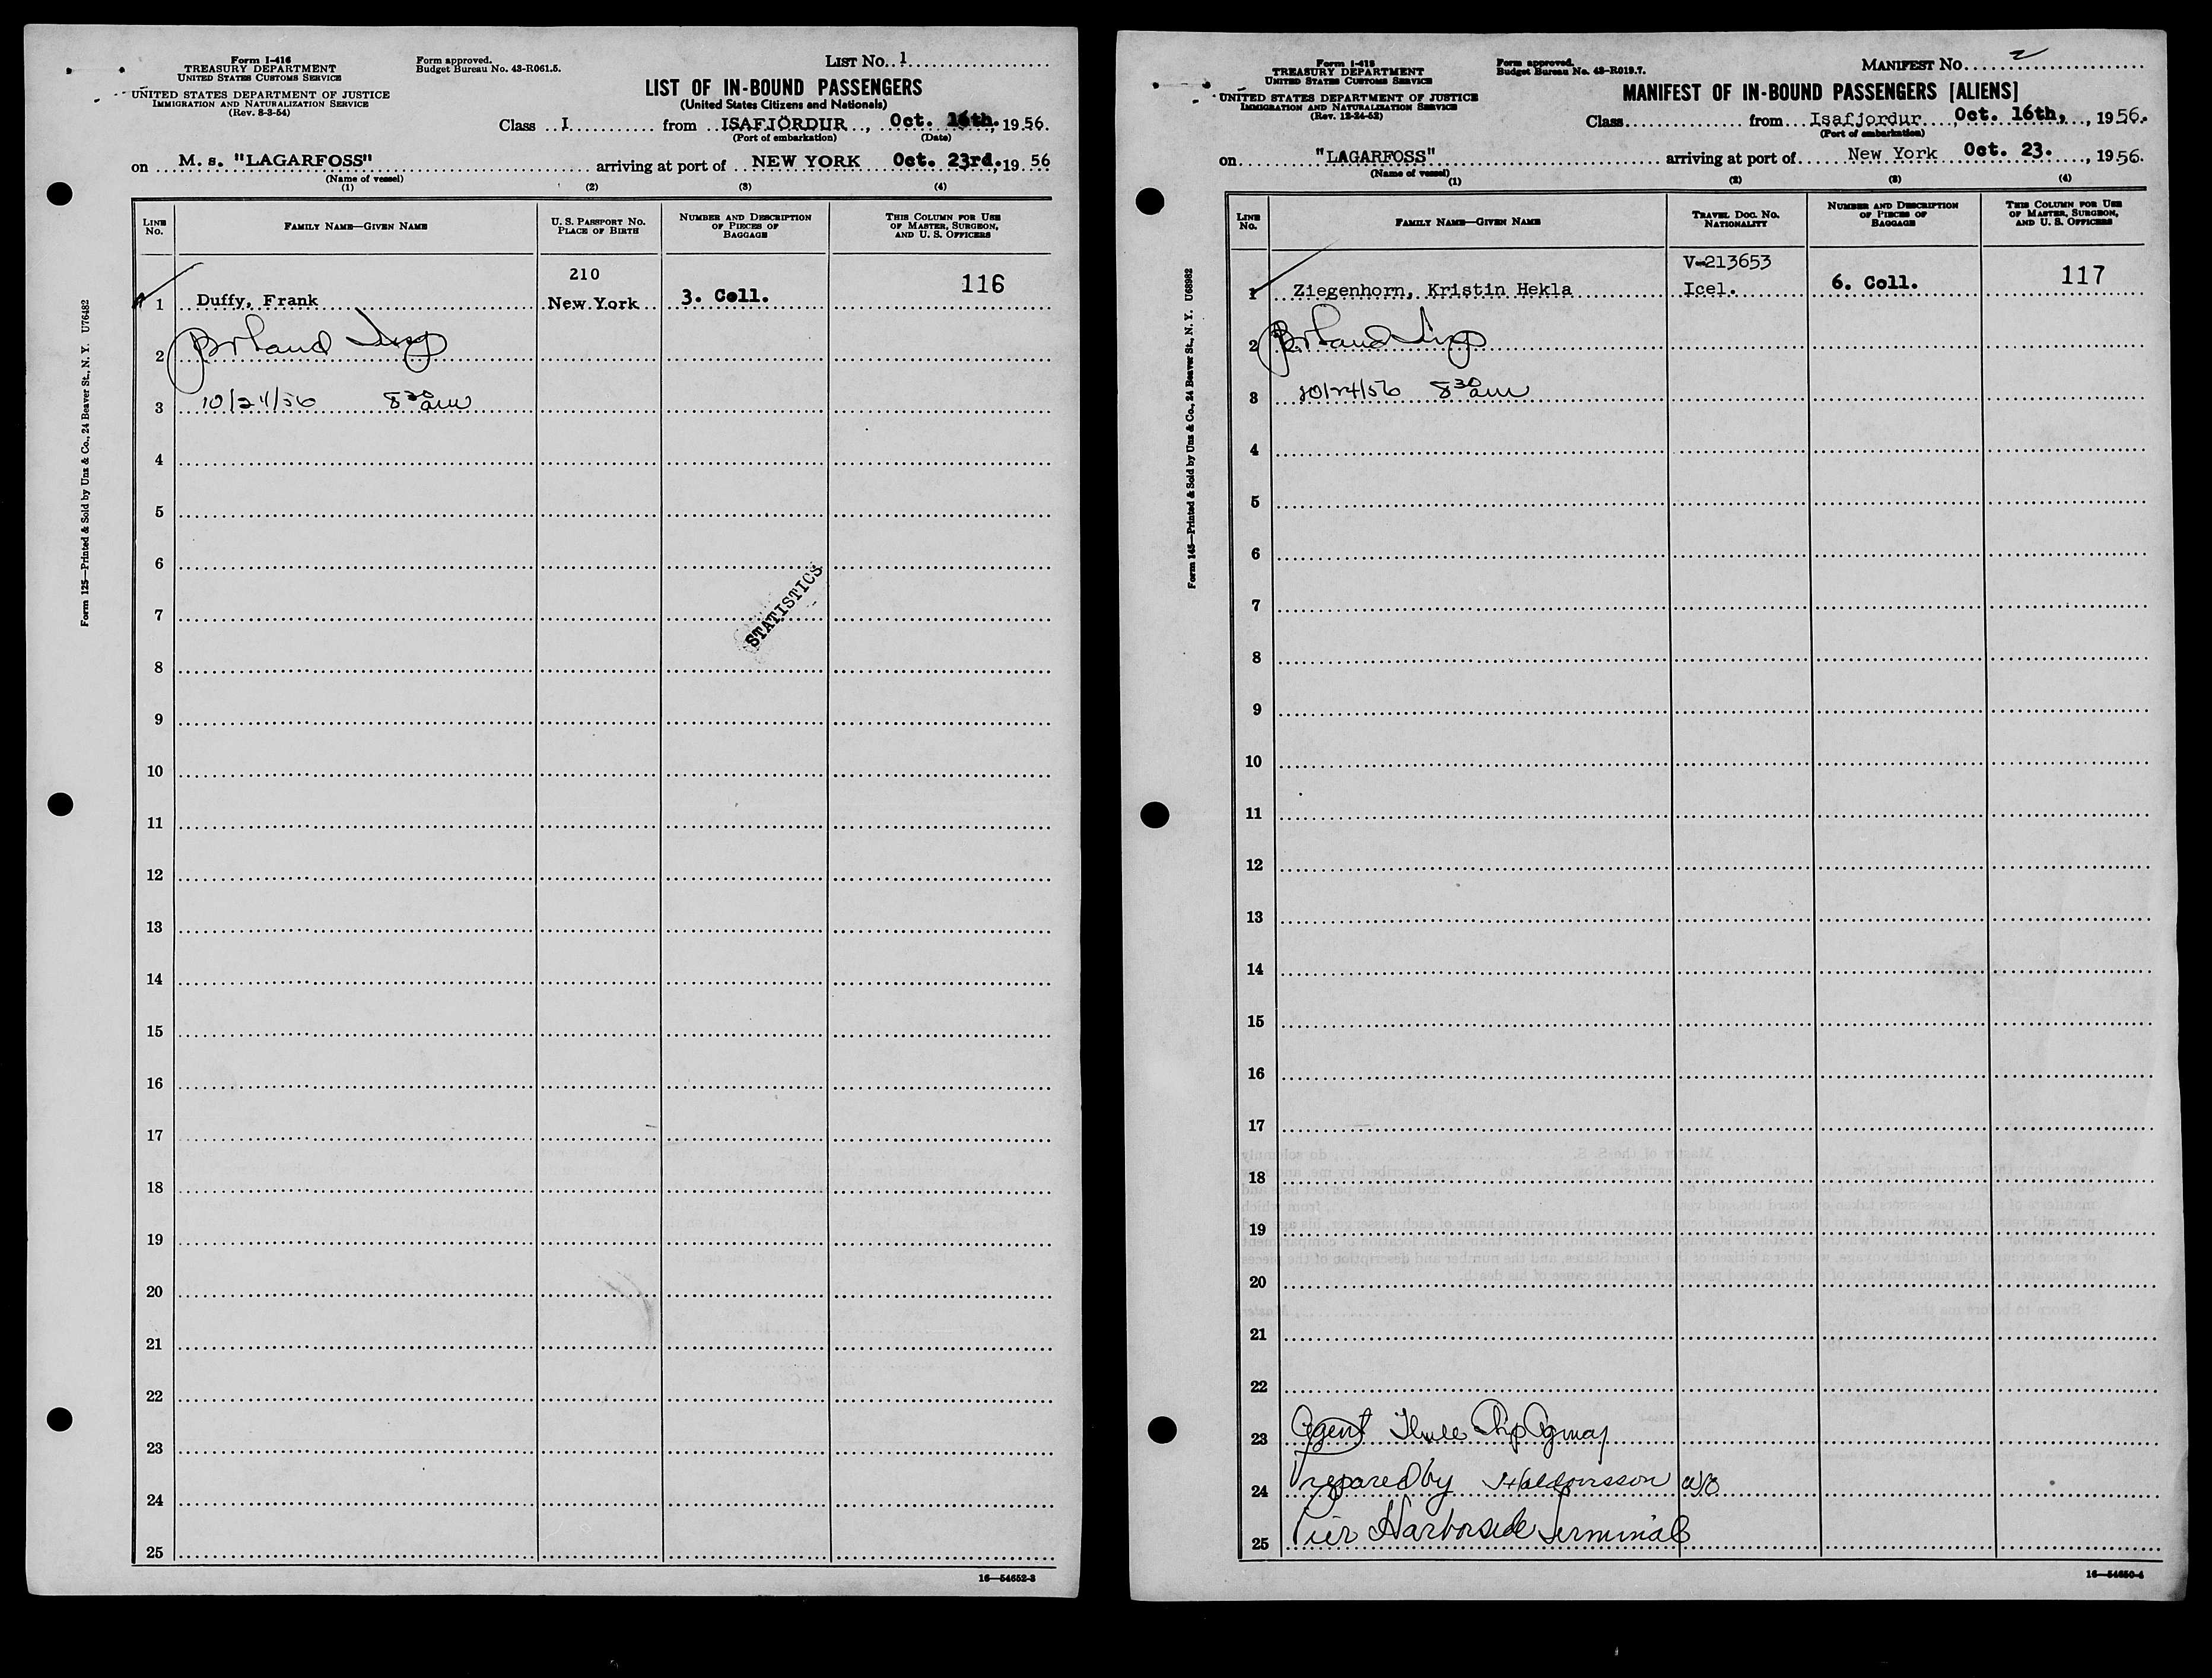 Form I-416
TREASURY DEPARTMENT
UNITED STATES CUSTOMS SERVICE
UNITED STATES DEPARTMENT OF JUSTICE
IMMIGRATION AND NATURALIZATION SERVICE
(Rev. 8-3-54)
Form approved.
Budget Bureau No. 43-R061.5.
LIST No. 1
LIST OF IN-BOUND PASSENGERS
(United States Citizens and Nationals)
Class I from ISAFJÖRDUR, Oct. 16th., 1956.
(Port of embarkation) (Date)
on M. s. "LAGARFOSS" arriving at port of NEW YORK Oct. 23rd., 1956
(Name of vessel)
(1) (2) (3) (4)
LINE No. FAMILY NAME—GIVEN NAME U. S. PASSPORT No. PLACE OF BIRTH NUMBER AND DESCRIPTION OF PIECES OF BAGGAGE THIS COLUMN FOR USE OF MASTER, SURGEON, AND U. S. OFFICERS
210
1 Duffy, Frank New York 3. Coll. 116
2
3 10/24/56 8 30 am
4
5
6
7
STATISTICS
8
9
10
11
12
13
14
15
16
17
18
19
20
21
22
23
24
25
16—54652-3
Form 125—Printed & Sold by Unz & Co., 24 Beaver St., N. Y. U76482
Form I-418
TREASURY DEPARTMENT
UNITED STATES CUSTOMS SERVICE
UNITED STATES DEPARTMENT OF JUSTICE
IMMIGRATION AND NATURALIZATION SERVICE
(Rev. 12-24-52)
Form approved.
Budget Bureau No. 43-R019.7.
MANIFEST No. 2
MANIFEST OF IN-BOUND PASSENGERS [ALIENS]
Class from Isafjordur, Oct. 16th, 1956.
(Port of embarkation)
on "LAGARFOSS" arriving at port of New York Oct. 23., 1956.
(Name of vessel)
(1) (2) (3) (4)
LINE No. FAMILY NAME—GIVEN NAME TRAVEL DOC. No. NATIONALITY NUMBER AND DESCRIPTION OF PIECES OF BAGGAGE THIS COLUMN FOR USE OF MASTER, SURGEON, AND U. S. OFFICERS
V-213653
1 Ziegenhorn, Kristin Hekla Icel. 6. Coll. 117
2
3 10/24/56 8 30 am
4
5
6
7
8
9
10
11
12
13
14
15
16
17
18
19
20
21
22
23 Agent Thule Ship Agency
24 Prepared by
25 Pier Harborside Terminal
16—54650-4
Form 145—Printed & Sold by Unz & Co., 24 Beaver St., N. Y. U68982